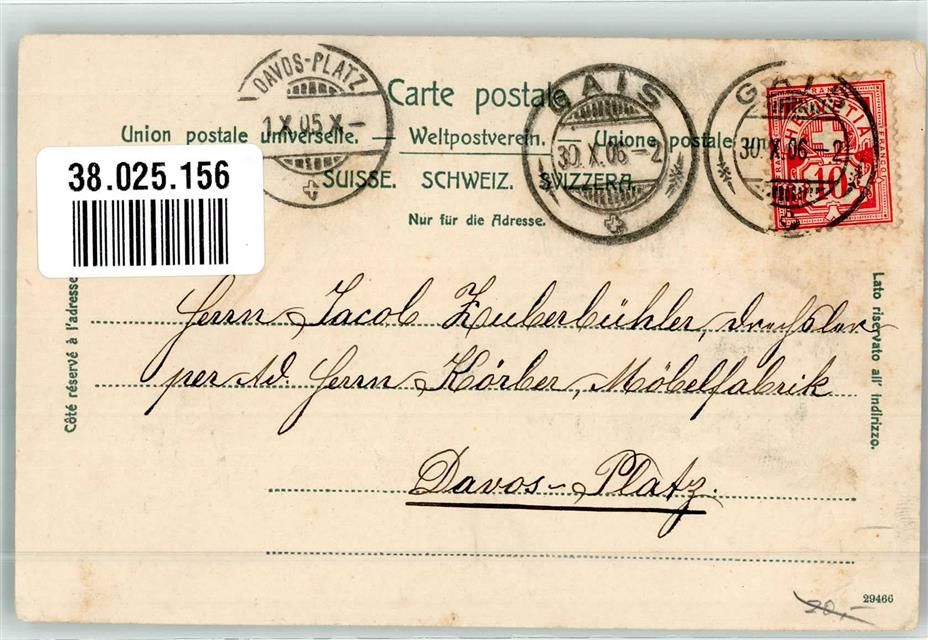 DAVOS-PLATZ
1.X.05 X-
Carte postale
GAIS
30.X.06-2
GAIS
30.X.06-2
HELVETIA
FRANCO
10
Union postale universelle. — Weltpostverein. — Unione postale
SUISSE. SCHWEIZ. SVIZZERA.
Nur für die Adresse.
38.025.156
Côté réservé à l'adresse
Lato riservato all' indirizzo.
Herrn Jacob Zuberbühler, Drechsler
per Ad. Herrn Körber, Möbelfabrik
Davos-Platz.
29466
20,-